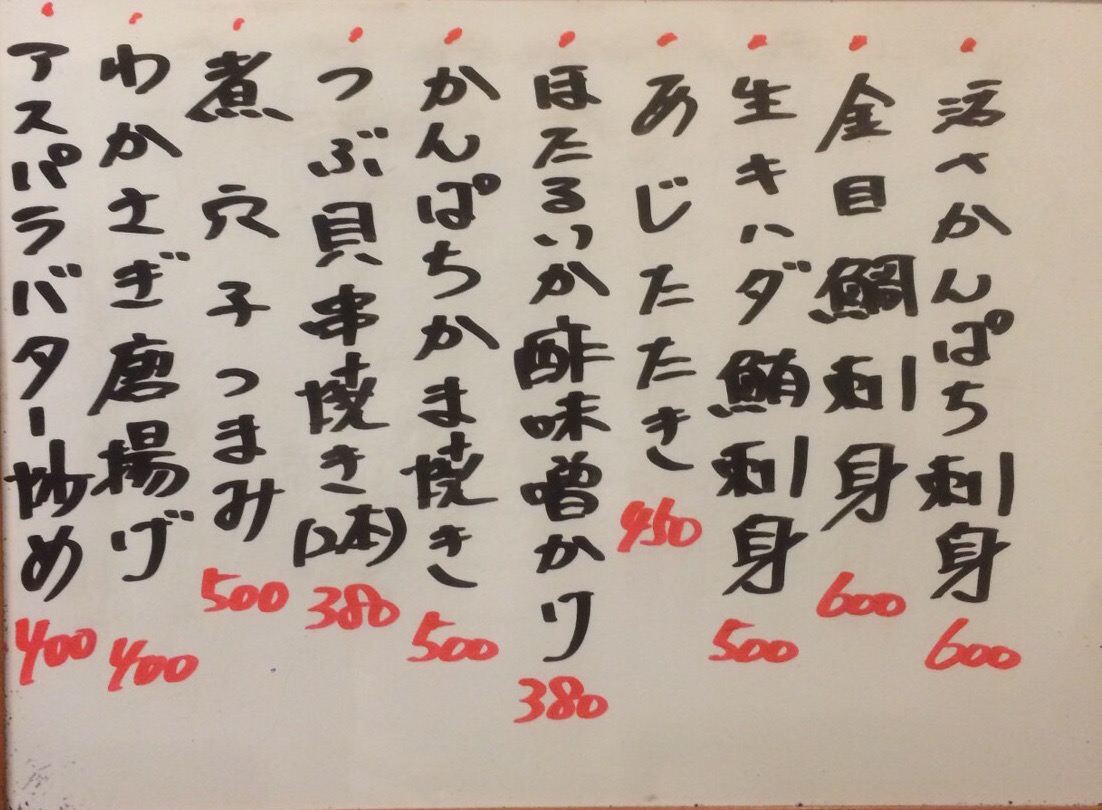 ・活〆かんぱち刺身 600
・金目鯛刺身 600
・生キハダ鮪刺身 500
・あじたたき 450
・ほたるいか酢味噌かけ 380
・かんぱちかま焼き 500
・つぶ貝串焼き(2本) 380
・煮穴子つまみ 500
・わかさぎ唐揚げ 400
・アスパラバター炒め 400